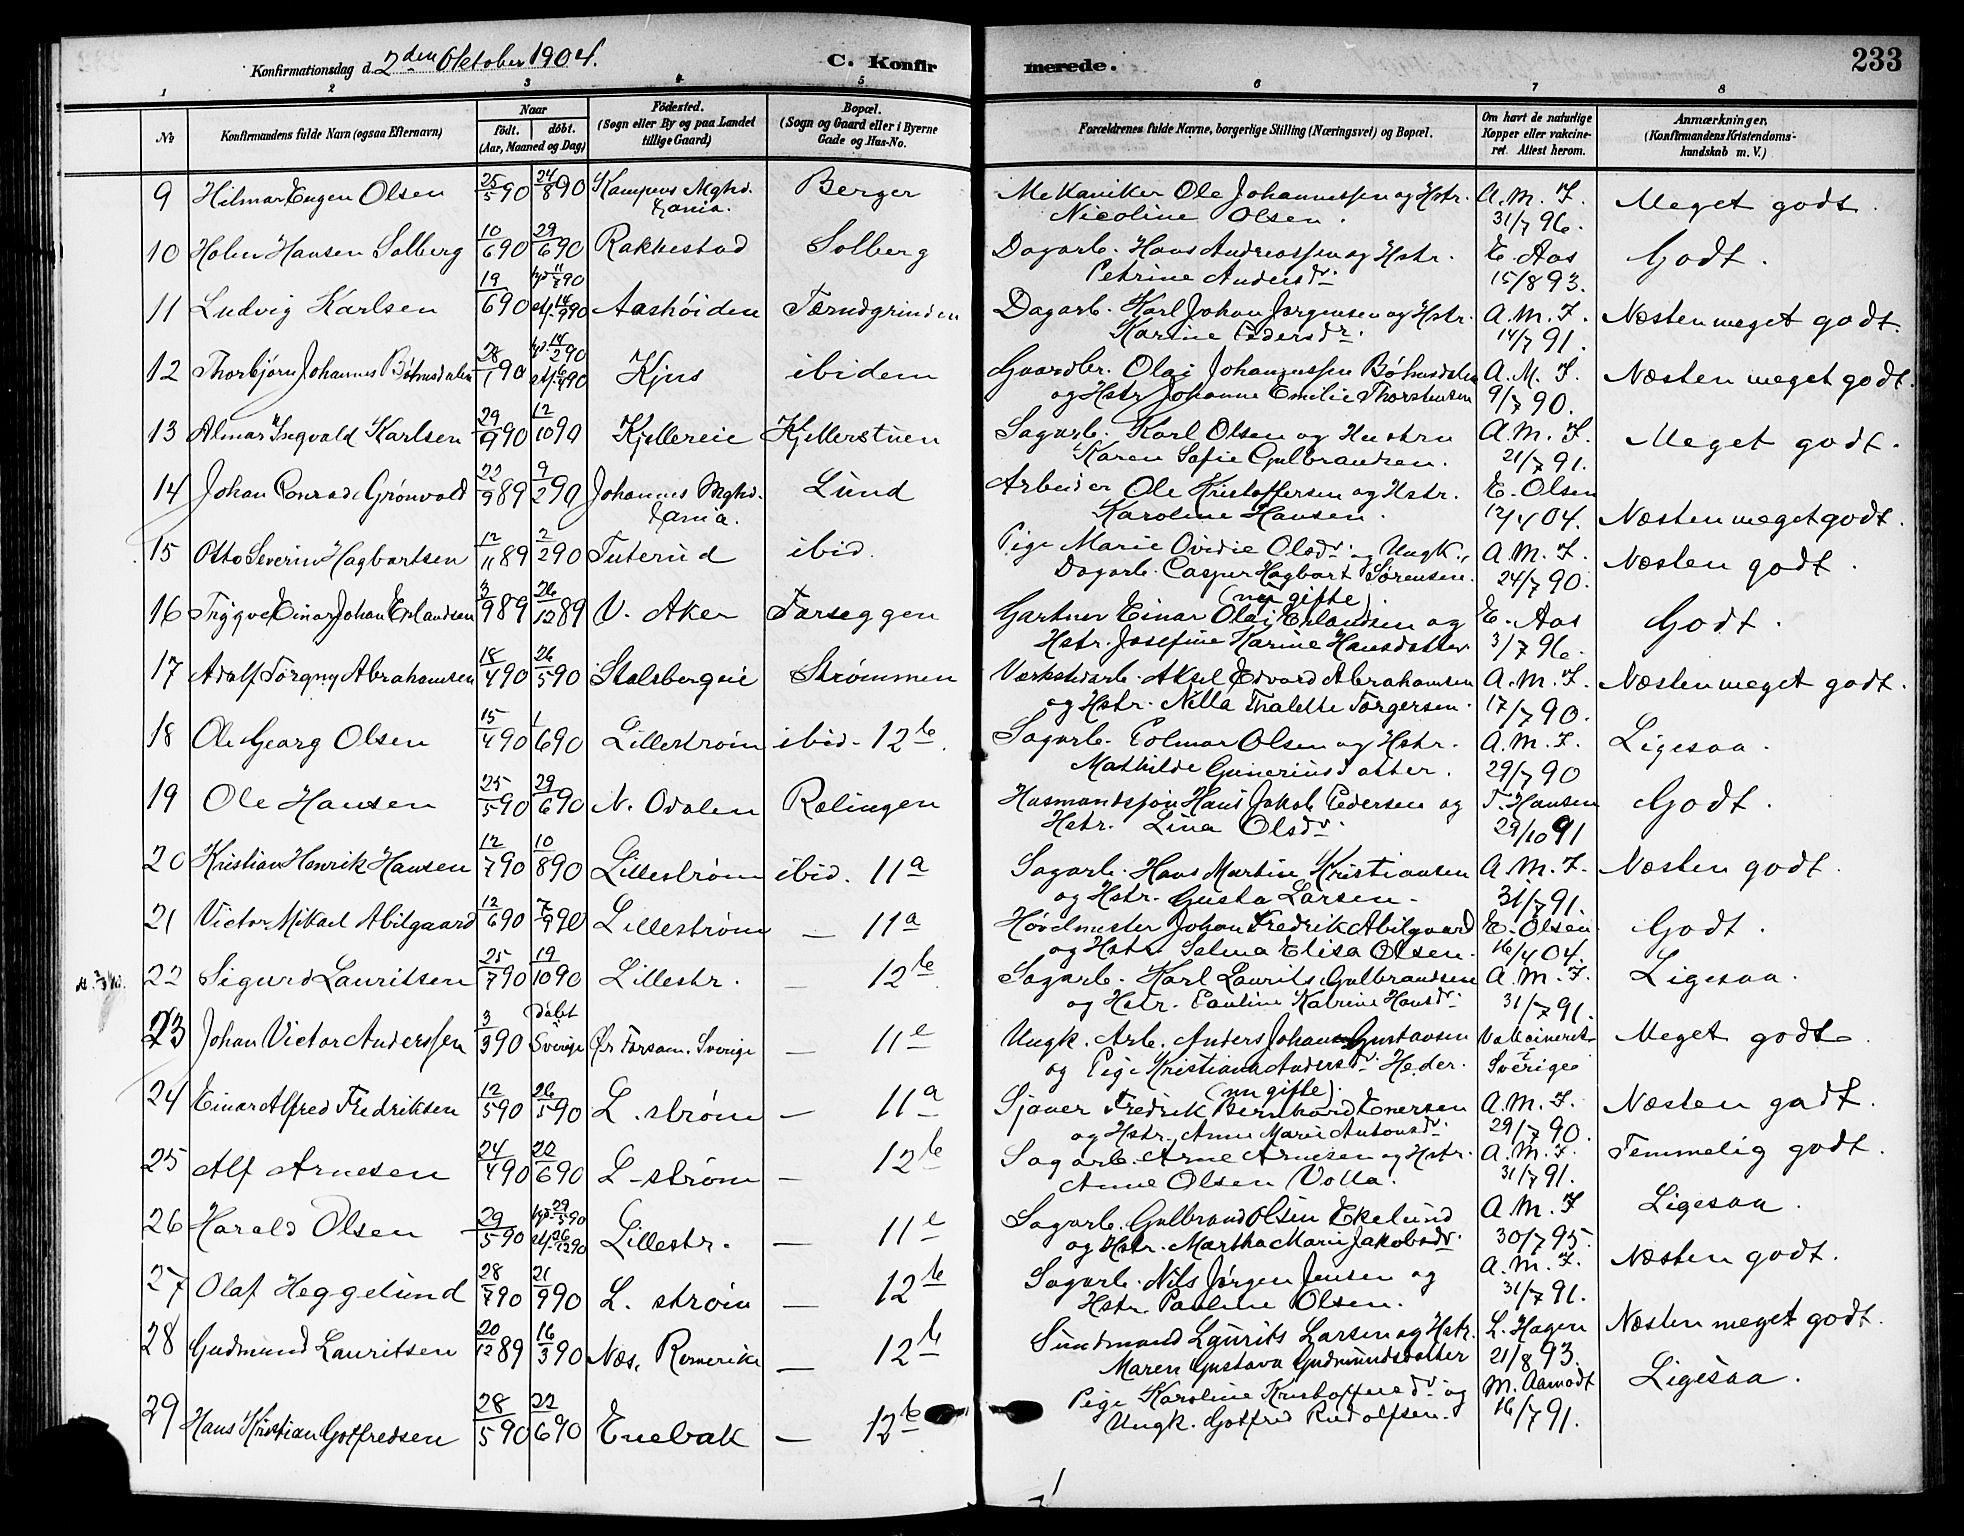 233
Konfirmationsdag d. 2den Oktober 1904.
C. Konfirmerede.
1 2 3 4 5 6 7 8
No
Konfirmandens fulde Navn (ogsaa Efternavn)
Naar
født. døbt.
(Aar, Maaned og Dag)
Födested.
(Sogn eller By og paa Landet
tillige Gaard)
Bopæl.
(Sogn og Gaard eller i Byerne
Gade og Hus-No.
Forældrenes fulde Navne, borgerlige Stilling (Næringsvei) og Bopæl.
Om havt de naturlige
Kopper eller vakcineret. Attest herom.
Anmærkninger.
(Konfirmandens Kristendomskundskab m. V.)
9 Hilmar Eugen Olsen 25/5 90 24/8 90 Kampens Mghd. Berger Mekaniker Ole Johannessen og Hstr. A. M. F. Meget godt.
Nicoline Olsen. 31/7 96.
10 Holm Hansen Solberg 10/6 90 29/6 90 Rakkestad Solberg Dagarb. Hans Andreassen og Hstr. E. Aas Godt.
Petrine Andersdr. 15/8 93.
11 Ludvig Karlsen 19/6 90 hjd 11/7 90 stf. 14/9 90 Aashöiden Tærudgrinden Dagarb. Karl Johan Jørgensen og Hstr. A. M. F. Næsten meget godt.
Karine Pedersdr. 14/7 91.
12 Thorbjörn Johannes Böhnsdalen 28/1 90 hjd. 14/2 90 Kjus ibidem Gaardbr. Olai Johannessen Böhnsdalen A. M. F. Næsten meget godt.
og Hstr Johanne Emilie Thorstensen 9/7 90.
13 Almar Ingvald Karlsen 29/9 90 12/10 90 Kjellereie Kjellerstuen Sagarb. Karl Olsen og Hustru A. M. F. Meget godt.
Karen Sofie Gulbrandsen. 21/7 91.
14 Johan Conrad Grönvold 22/9 89 9/2 90 Johannes Mghd. Lund Arbeider Ole Kristoffersen og Hstr. E. Olsen
Karoline Hansen. 12/4 04. Næsten meget godt.
15 Otto Severin Hagbartsen 12/11 89 2/2 90 Tuterud ibid. Pige Marie Ovidie Olsdr. og Ungk., A. M. F. Næsten godt.
Dagarb. Casper Hagbart Sörensen. 24/7 90.
(nu gifte).
16 Trygve Einar Johan Erlandsen 3/9 89 26/12 89 V. Aker Farseggen Gartner Einar Olai Erlandsen og E. Aas Godt.
Hstr. Josefine Karine Hansdatter 3/7 96.
17 Adolf Torgny Abrahamsen 18/4 90 26/5 90 Stalsbergeie Strømmen Værkstedsarb. Aksel Edvard Abrahamsen A. M. F. Næsten meget godt.
og Hstr. Nilla Thalette Torgersen. 17/7 90.
18 Ole Georg Olsen 15/4 90 1/6 90 Lillestrøm ibid. 12b. Sagarb. Colmar Olsen og Hstr. A. M. F. Ligesaa.
Mathilde Gunerius datter. 29/7 90
19 Ole Hansen 25/5 90 29/6 90 N. Odalen Rælingen Husmandssøn Hans Jakob Pedersen og T. Hansen Godt.
Hstr. Lina Olsdr. 29/10 91
20 Kristian Henrik Hansen 12/7 90 10/8 90 Lillestrøm ibid. 11a Sagarb. Hans Martin Kristiansen A. M. F. Næsten godt.
og Hstr. Gusta Larsen. 31/7 91.
21 Victor Mikael Abilgaard 12/6 90 7/9 90 Lillestrøm — 11a Høvelmester Johan Fredrik Abilgaard E. Olsen Godt.
og Hstr Selma Elisa Olsen. 16/4 04.
22 Sigurd Lauritsen 25/7 90 19/10 90 Lillestr. — 12b Sagarb. Karl Laurits Gulbrandsen A. M. F. Ligesaa.
og Hstr. Pauline Katrine Hansdr. 31/7 91.
23 Johan Victor Anderssen 3/3 90 Döbt i Sverige Ør Forsam. Sverige — 11e Ungk. Arb. Anders Johan Gustavsen Vakcineret Meget godt.
og Pige Kristiana Andersdr. Heder. i Sverige
(nu gifte).
24 Einar Alfred Fredriksen 12/5 90 26/5 90 L. strøm — 11a Sjauer Fredrik Bernhard Enersen A. M. F. Næsten godt.
og Hstr. Anne Marie Antonsdr. 29/7 90.
25 Alf Arnesen 24/4 90 22/6 90 L-strøm — 12b Sagarb. Arne Arnesen og Hstr. A. M. F. Temmelig godt.
Anne Olsen Volla. 31/7 91.
26 Harald Olsen 29/5 90 hjd. 29/5 90 stf. 26/12 90 Lillestr. — 11e Sagarb. Gulbrand Olsen Ekelund A. M. F Ligesaa.
og Hstr. Martha Marie Jakobsdr. 30/7 95.
27 Olaf Heggelund 28/7 90 21/9 90 L. strøm — 12b Sagarb. Nils Jørgen Jensen og A. M. F. Næsten godt.
Hstr. Pauline Olsen. 31/7 91.
28 Gudmund Lauritsen 20/12 89 16/3 90 Næs, Romerike — 12b Sundmand Laurits Larsen og Hstr. L. Hagen Næsten meget godt.
Maren Gustava Gudmundsdatter 21/8 93.
29 Hans Kristian Gotfredsen 28/5 90 22/6 90 Enebak — 12b Pige Karoline Kristoffersdr. og M. Aamodt Ligesaa.
Ungk. Gotfred Rudolfsen. 16/7 91.